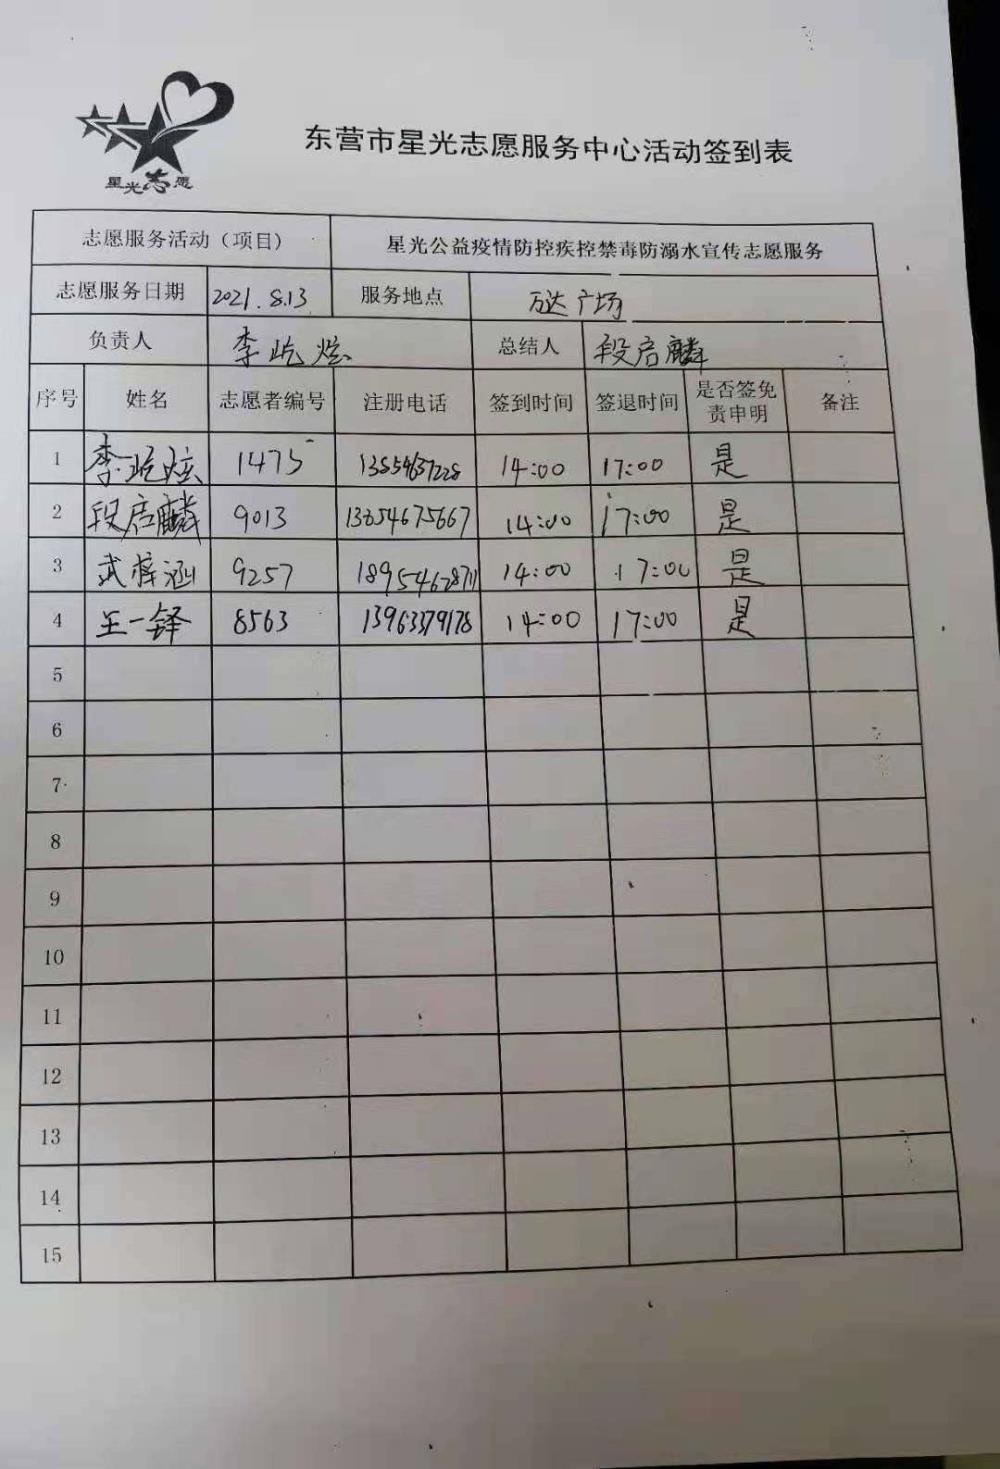 星光志愿
东营市星光志愿服务中心活动签到表
志愿服务活动（项目） 星光公益疫情防控疾控禁毒防溺水宣传志愿服务
志愿服务日期 2021.8.13 服务地点 万达广场
负责人 李屹炫 总结人 段启麟
序号 姓名 志愿者编号 注册电话 签到时间 签退时间 是否签免责申明 备注
1 李屹炫 1475 13854637228 14:00 17:00 是
2 段启麟 9013 13654675667 14:00 17:00 是
3 武梓涵 9257 18954678711 14:00 17:00 是
4 王一铎 8563 13963379178 14:00 17:00 是
5
6
7
8
9
10
11
12
13
14
15